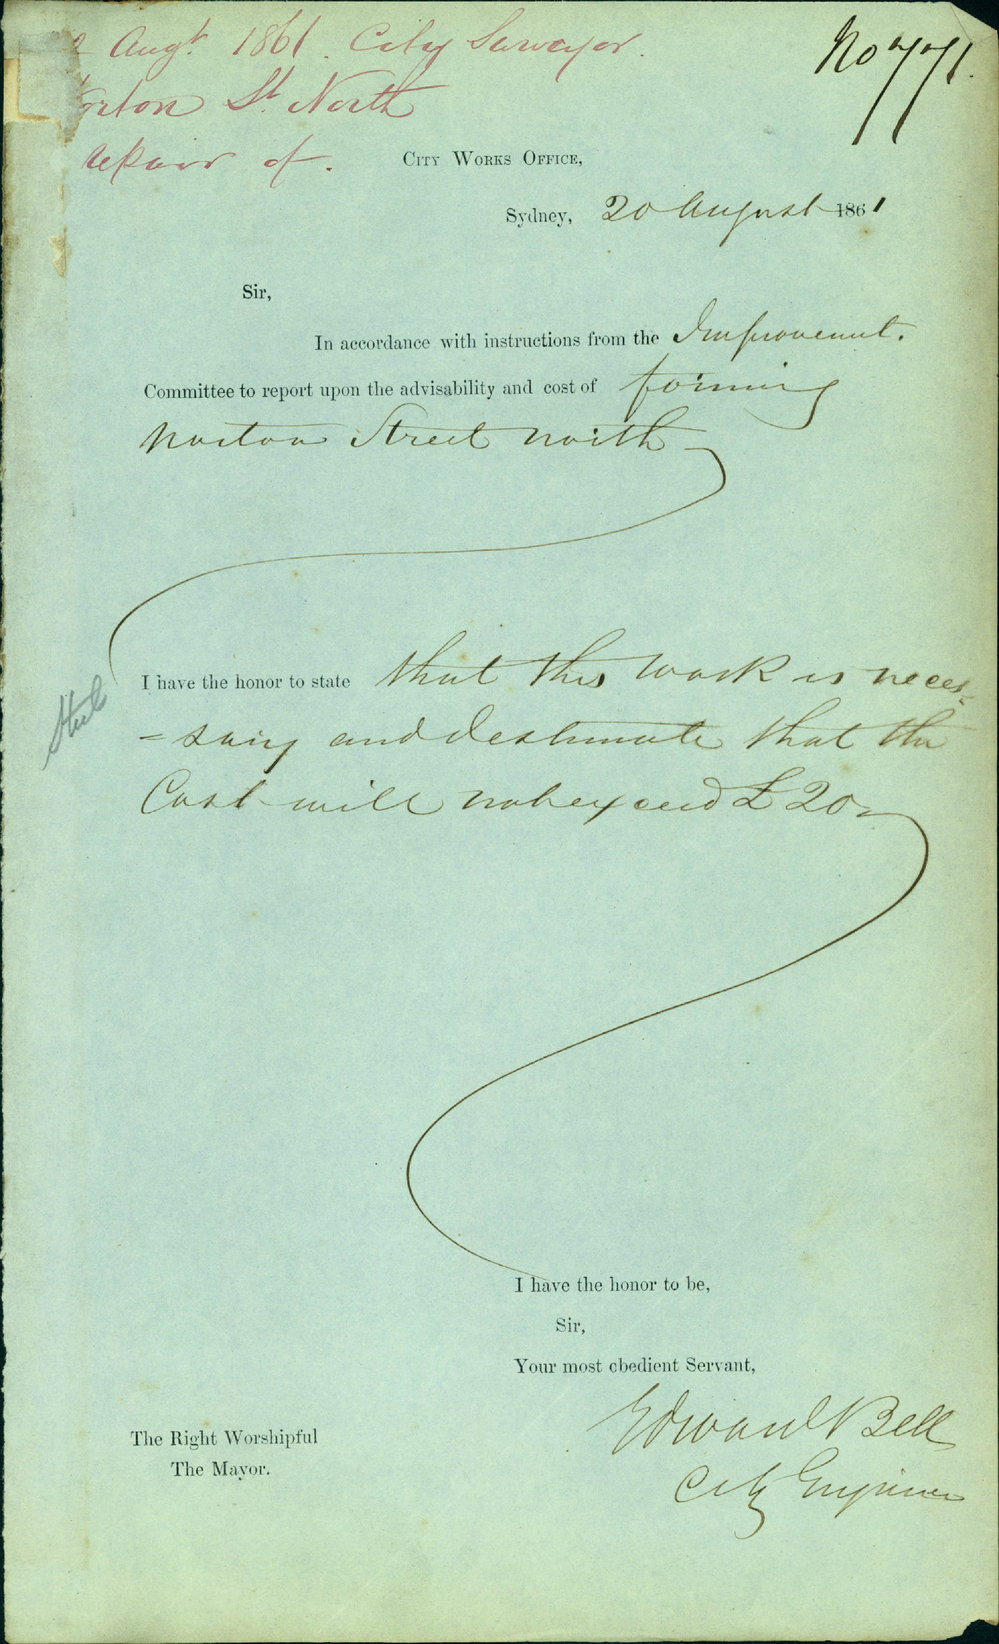 Augt. 1861. City Surveyor.
Norton St. North
repair of.
No 771.
City Works Office,
Sydney, 20 August 1861
Sir,
In accordance with instructions from the Improvement.
Committee to report upon the advisability and cost of forming
Norton Street North
I have the honor to state that this work is neces-
=sary and I estimate that the
Cost will not exceed £20
I have the honor to be,
Sir,
Your most obedient Servant,
Edward Bell
City Engineer
The Right Worshipful
The Mayor.